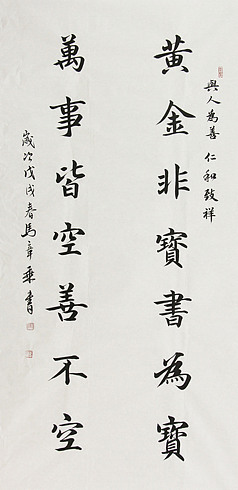 與人為善 仁和致祥
黃金非寶書為寶
萬事皆空善不空
歲次戊戌春馬幸乘書